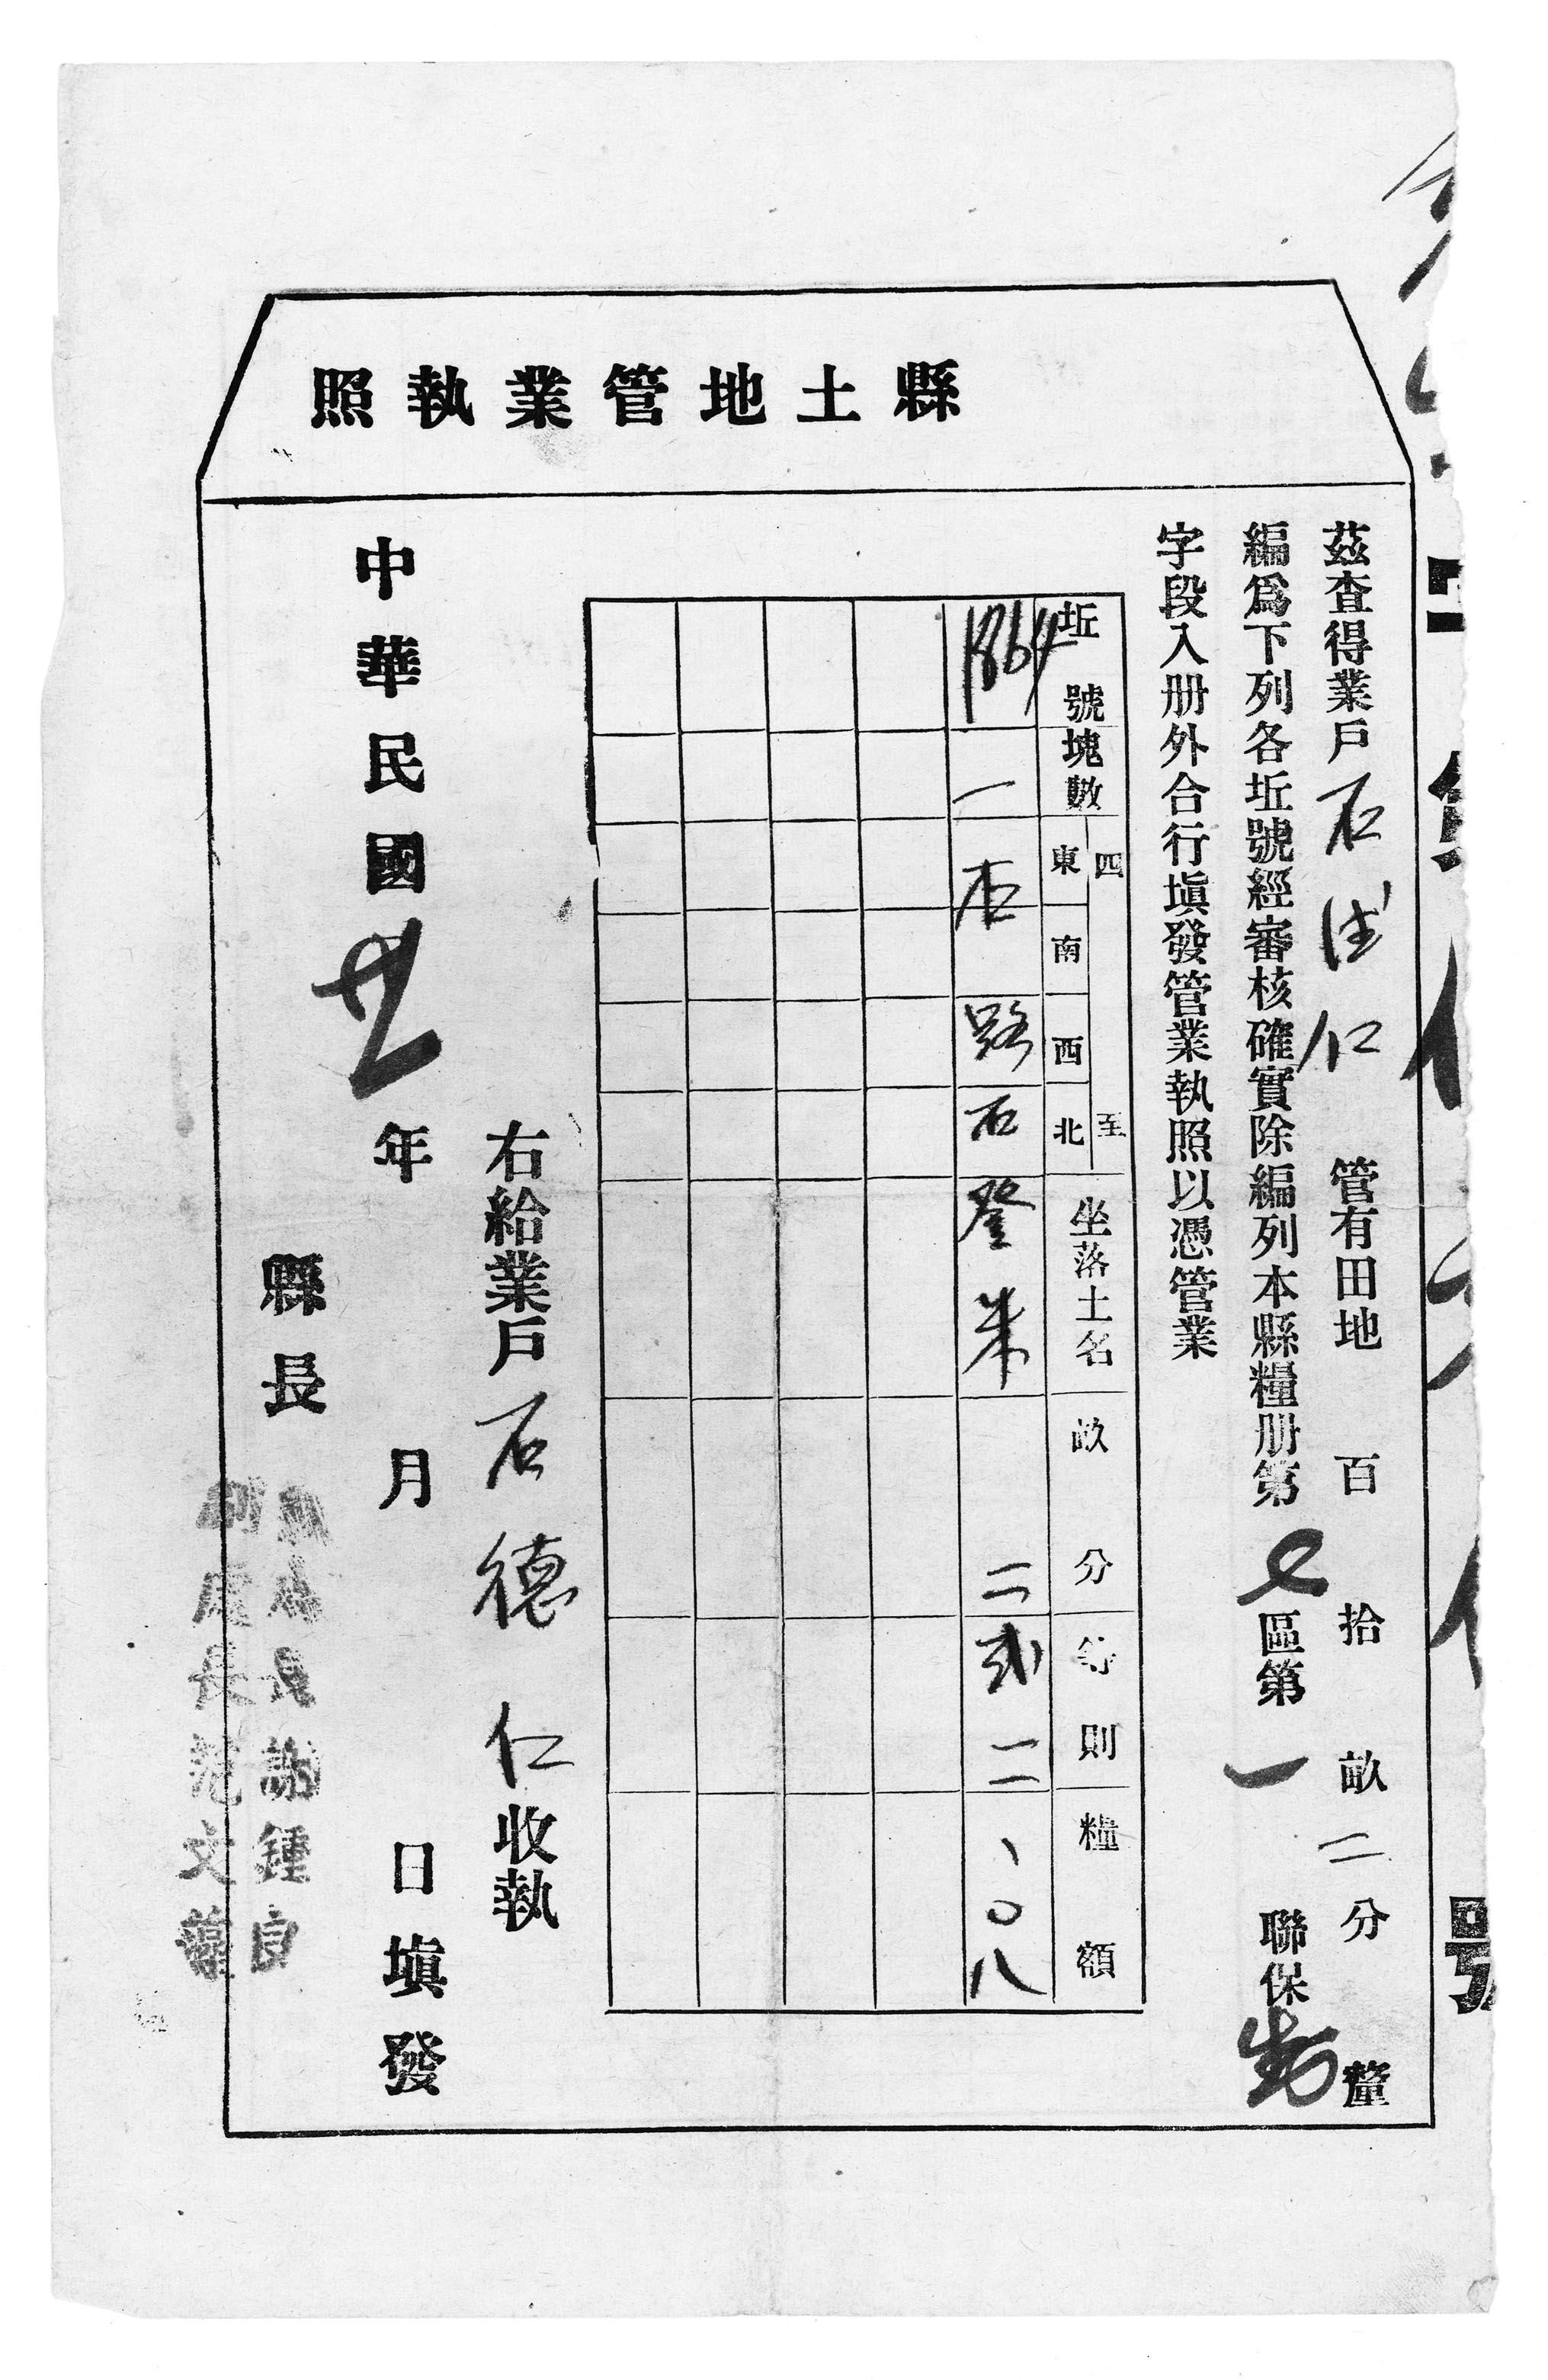 縣土地管業執照
號
茲查得業戶石德仁管有田地 百 拾 畝二分 釐
編爲下列各坵號經審核確實除編列本縣糧册第七區第一聯保
字段入册外合行塡發管業執照以憑管業
坵號 塊數 四至 東 南 西 北 坐落土名 畝分 等則 糧額
1864 一 路 石 二 貳 二 、〇八
右給業戶石德仁收執
中華民國 年 月 日塡發
縣長
謝鍾良
副處長范文